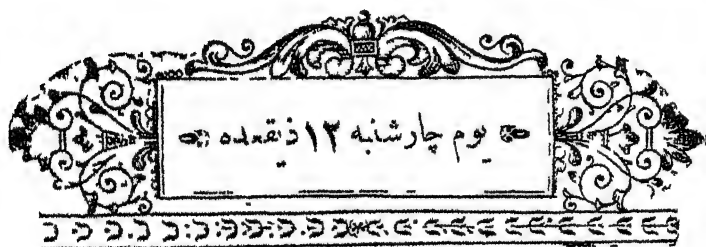 یوم چارشنبه ۱۳ ذیقعده